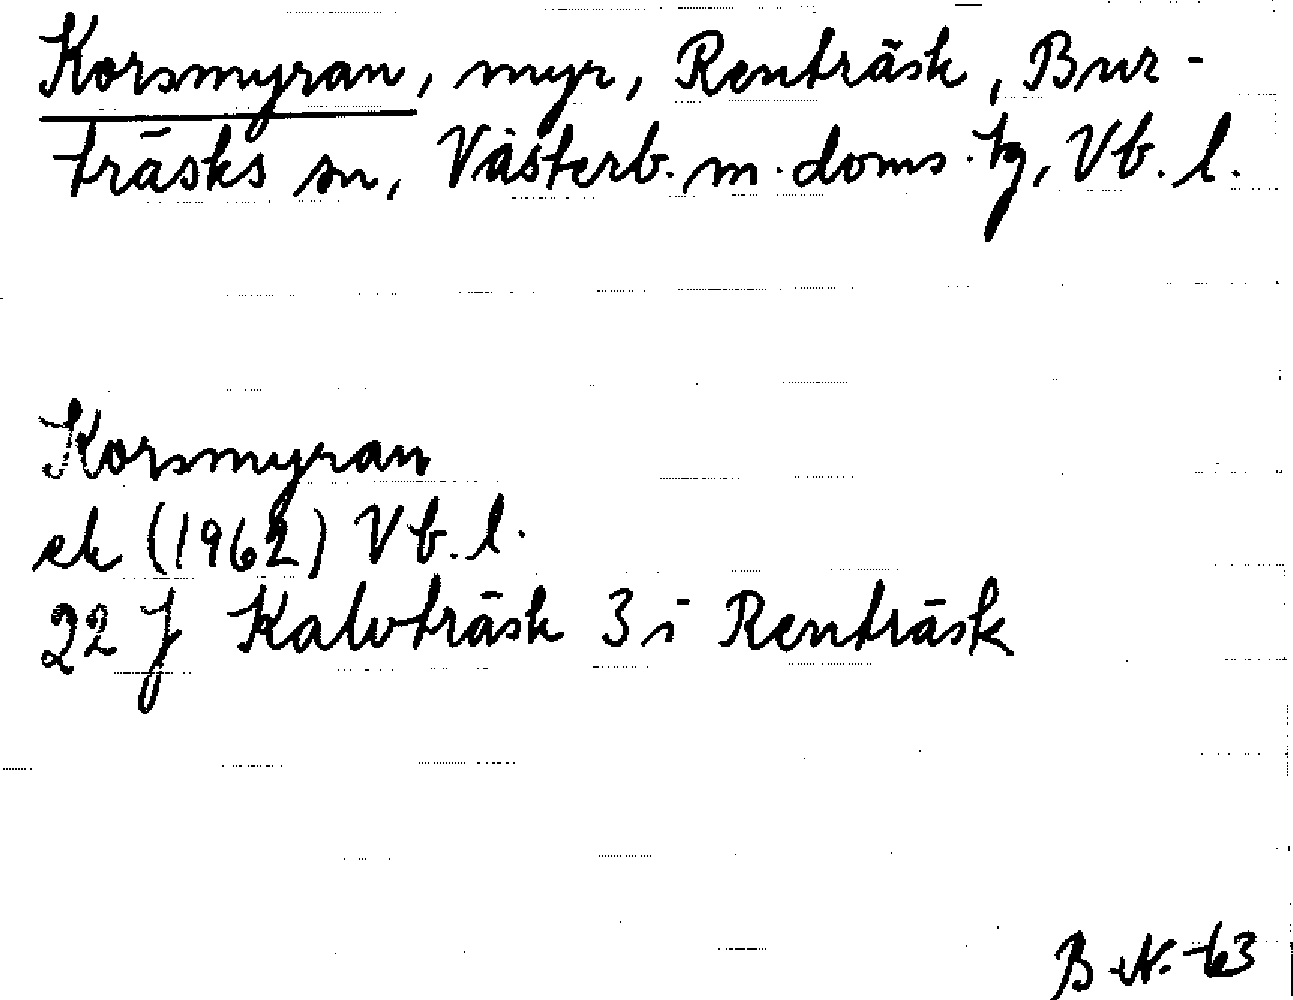 Korsmyran, myr, Renträsk, Bur-
träsks sn, Västerb. m. doms. tg, Vb. l.
Korsmyran
ek (1962) Vb. l.
22 J Kalvträsk 3 i Renträsk
B.N. -63